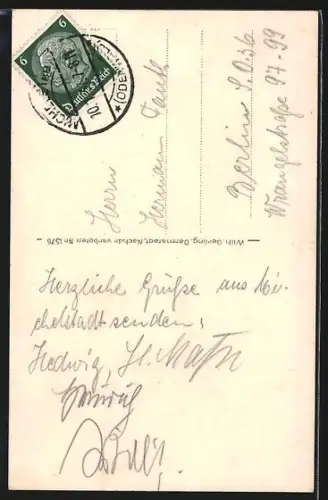 6
6
Deutsches Reich
(ODENWALD)
Herrn
Hermann
Berlin S.O.36
Wrangelstraße 97-99
Wilh. Gerling, Darmstadt, Nachdr. verboten Nr. 1576
Herzliche Grüße aus Mi-
chelstadt senden:
Hedwig,
Heinrich